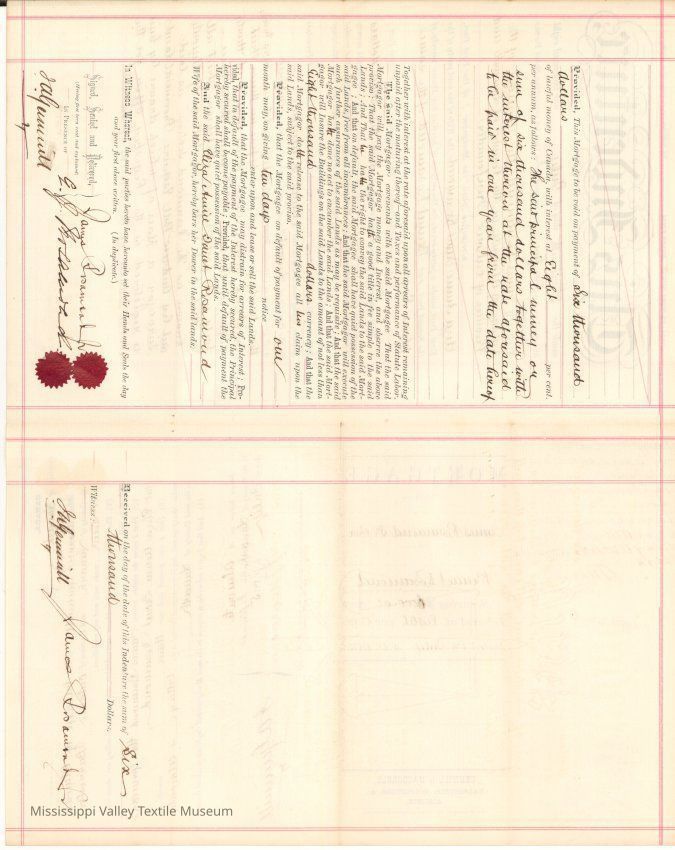 Provided, This Mortgage to be void on payment of Six thousand
dollars
of lawful money of Canada, with interest at Eight per cent.
per annum as follows: The said principal money or
sum of six thousand dollars together with
the interest thereon at the rate aforesaid
to be paid in one year from the date hereof
Together with interest at the rate aforesaid upon all arrears of Interest remaining
unpaid after the maturing thereof and Taxes and performance of Statute Labor.
The said Mortgagor covenants with the said Mortgagee: That the said
Mortgagor will pay the Mortgage money and Interest, and observe the above
proviso: That the said Mortgagor hath a good title in fee simple to the said
Lands; And That he hath the right to convey the said Lands to the said Mort-
gagee: And that on default, the said Mortgagee shall have quiet possession of the
said Lands, free from all incumbrances; And that the said Mortgagor will execute
such further assurances of the said Lands as may be requisite; And that the said
Mortgagor hath done no act to encumber the said Lands; And that the said Mort-
gagor will insure the Buildings on the said Lands to the amount of not less than
Eight thousand dollars currency: And that the
said Mortgagor doth release to the said Mortgagee all his claim upon the
said Lands, subject to the said proviso.
Provided, that the Mortgagee on default of payment for one
month may, on giving ten days notice
enter upon and lease or sell the said Lands.
Provided, that the Mortgagee may distrain for arrears of Interest; Pro-
vided, that in default of the payment of the Interest hereby secured, the Principal
hereby secured shall become payable; Provided, that until default of payment the
Mortgagor shall have quiet possession of the said Lands.
And the said
Rosamond
Wife of the said Mortgagor, hereby bars her Dower in the said lands.
In Witness Whereof, the said parties hereto have hereunto set their Hands and Seals the day
and year first above written. (In duplicate)
Signed, Sealed and Delivered,
in Presence of
James Rosamond
Received on the day of the date of this Indenture the sum of Six
thousand Dollars,
Witness:
James Rosamond
Mississippi Valley Textile Museum